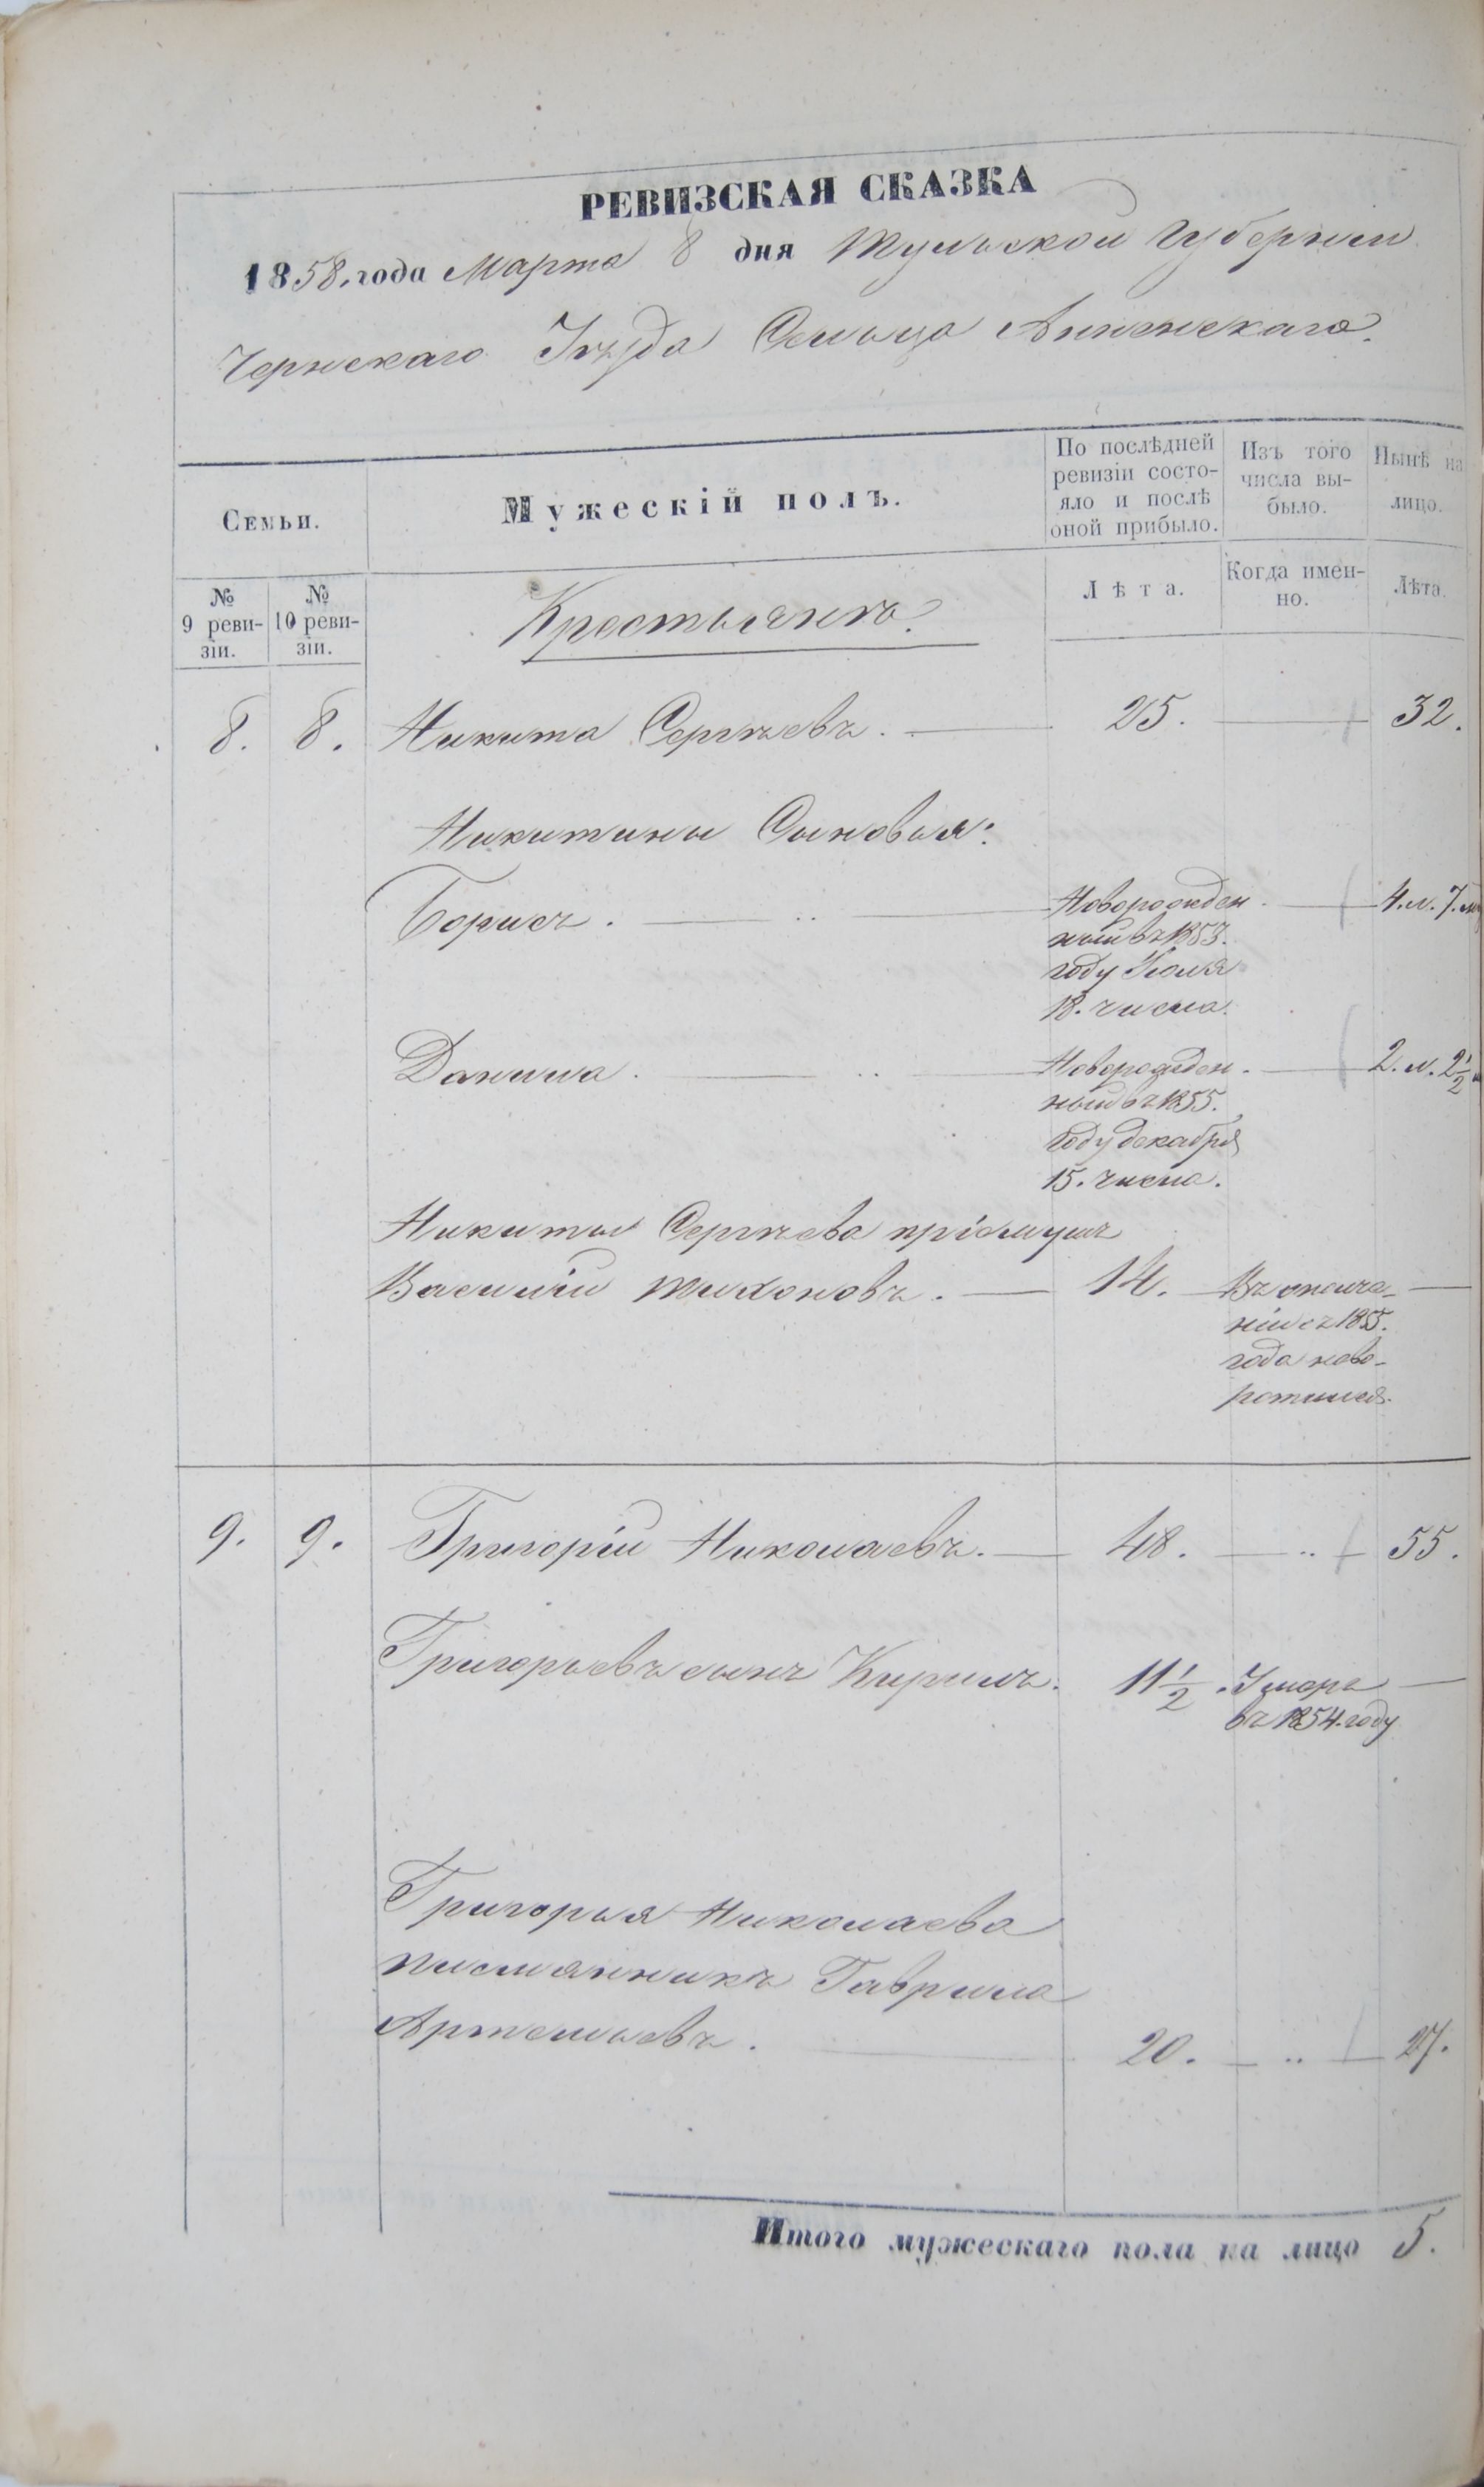 РЕВИЗСКАЯ СКАЗКА
1858. года Марта 8 дня Тульской Губернии
Чернскаго Уѣзда Сельца Анненскаго.
Семьи.
Мужескій полъ.
По послѣдней ревизіи состояло и послѣ оной прибыло.
Изъ того числа выбыло.
Нынѣ на лицо.
№ 9 ревизіи.
№ 10 ревизіи.
Крестьянъ.
Лѣта.
Когда именно.
Лѣта.
8. 8. Никита Сергѣевъ. 25. 32.
Никитины Сыновья:
Борисъ. Новорожден 4. л. 7. м
ный въ 1853.
году Іюля
18. числа.
Данила. Новорожден 2. л. 2½
ный въ 1855.
году декабря
15. числа.
Никиты Сергѣева пріемышъ
Василій Тихоновъ. 14. Въ ополче-
ніи съ 1855.
года не во-
ротился.
9. 9. Григорій Николаевъ. 48. 55.
Григорьевъ сынъ Кирилъ. 11½ Умеръ
въ 1854. году
Григорья Николаева
племянникъ Гаврила
Артемьевъ. 20. 27.
Итого мужескаго пола на лицо 5.